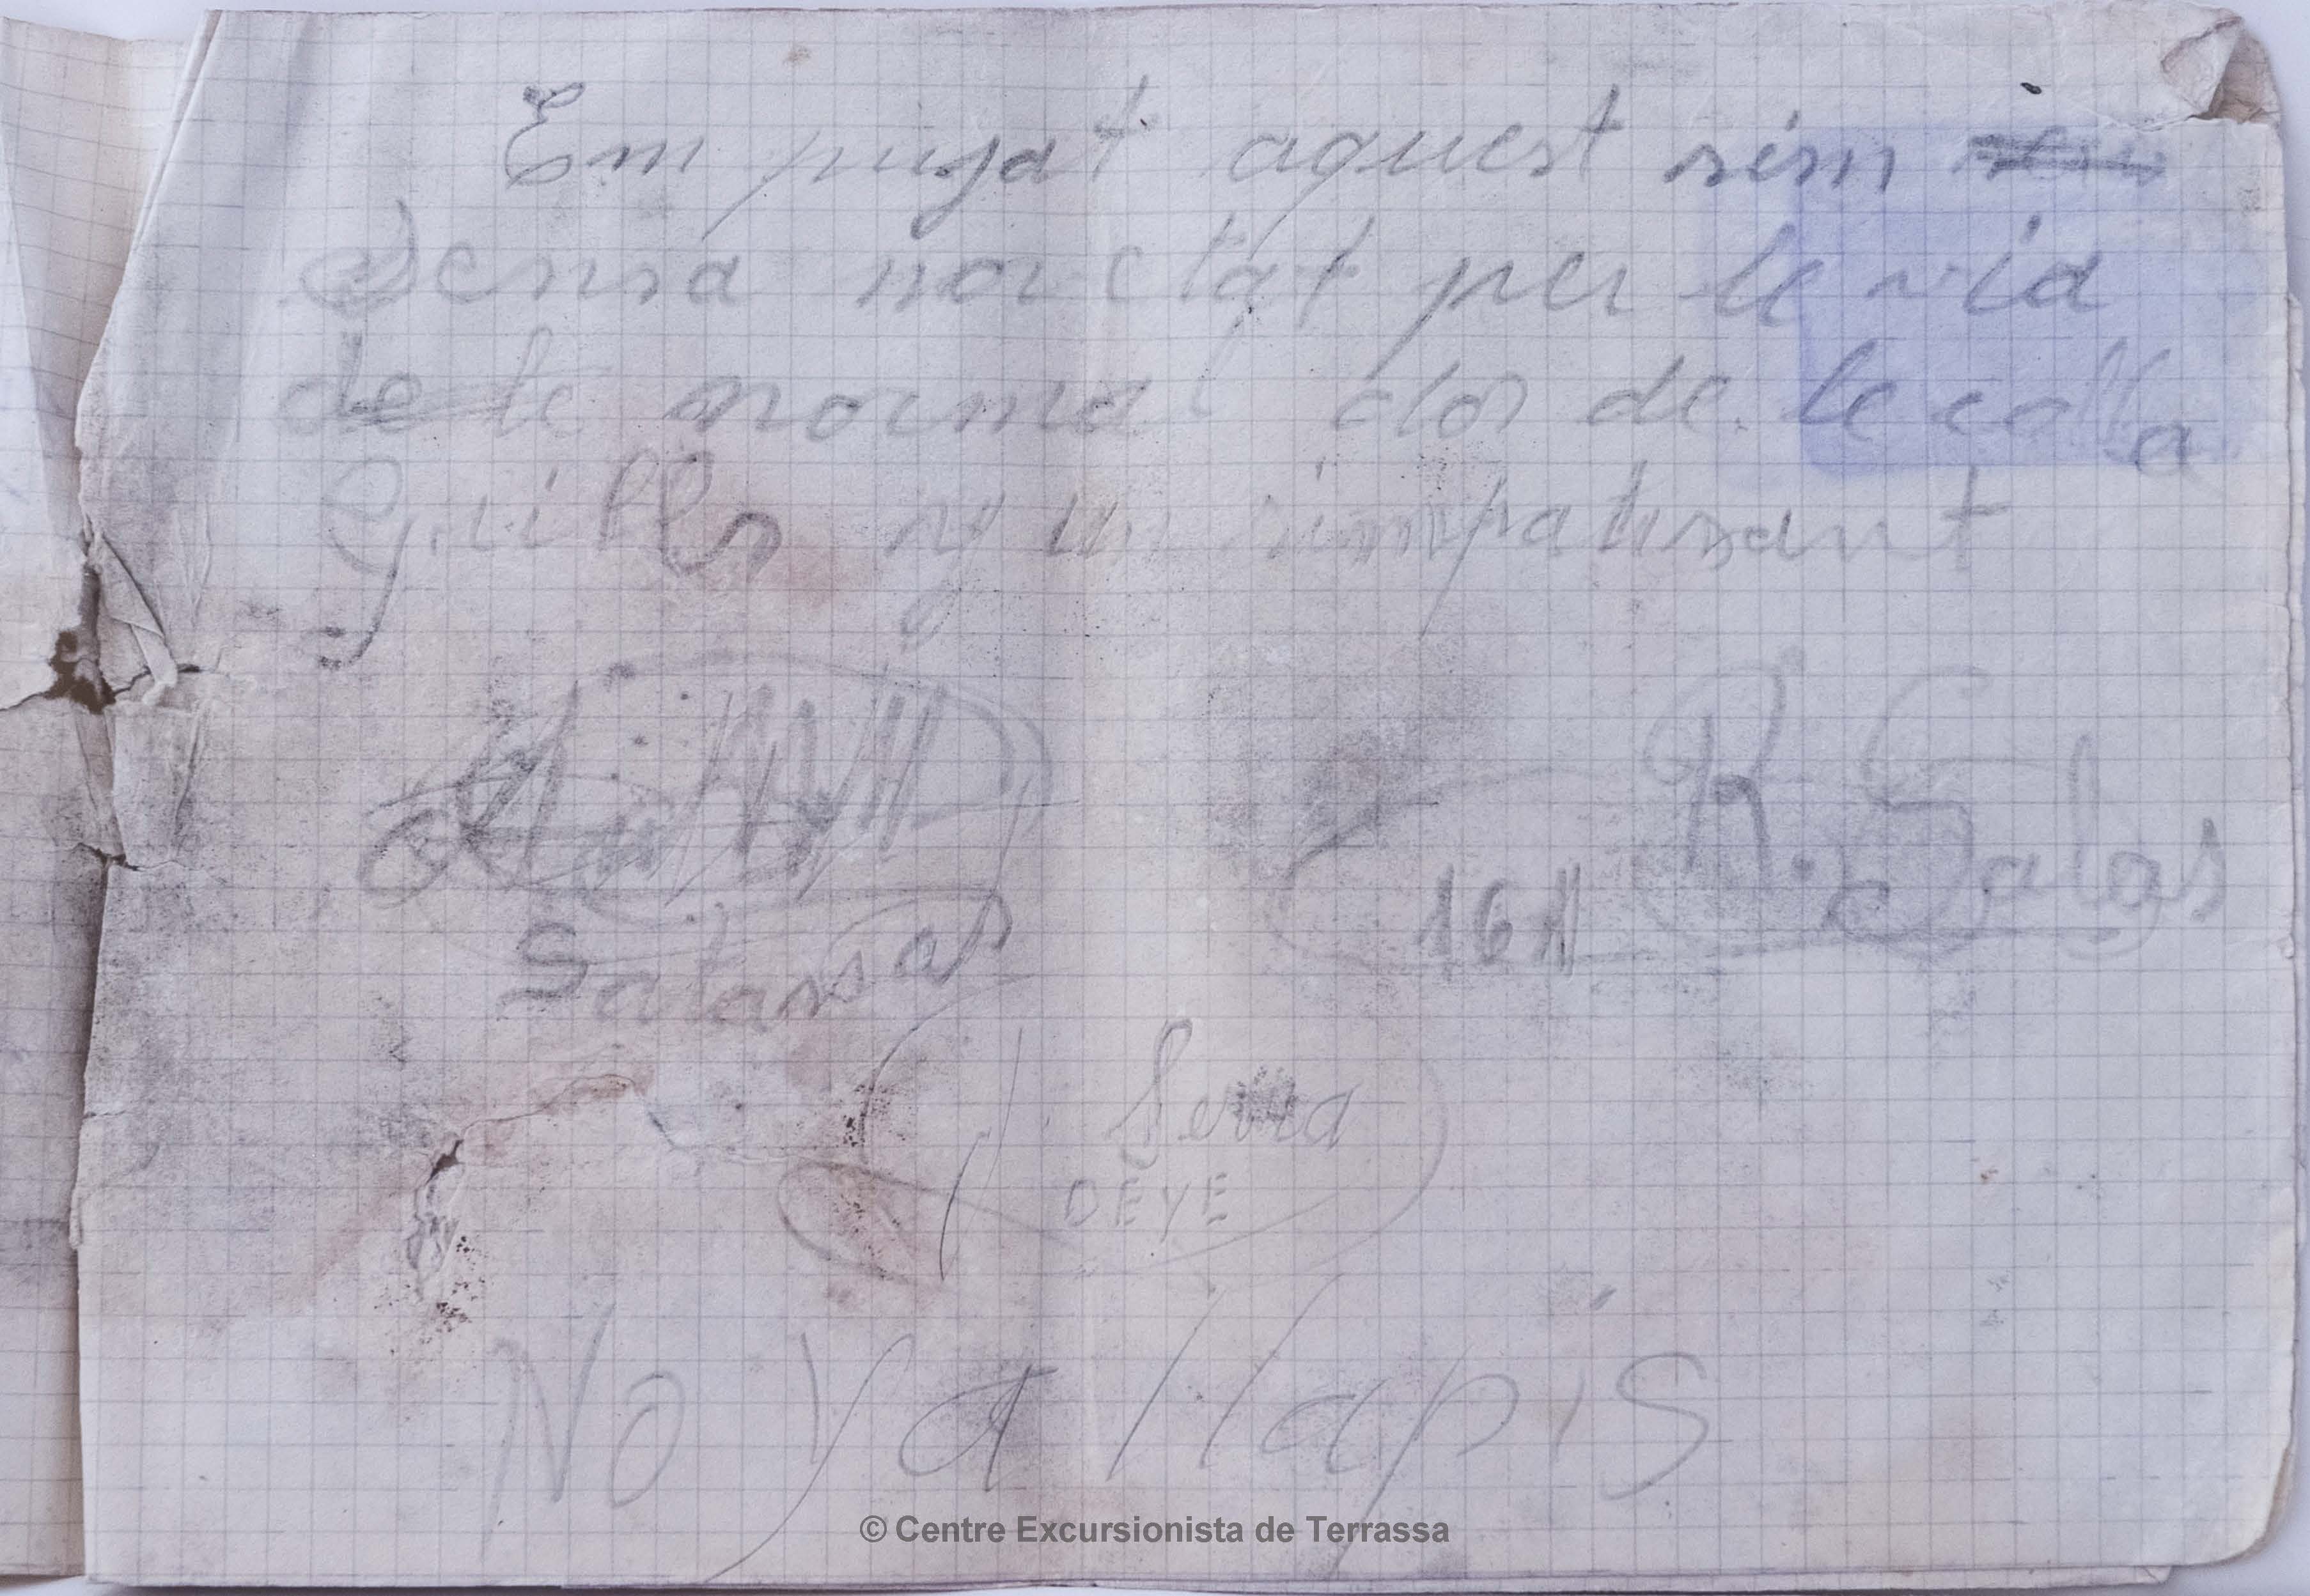 Em pujat aquest sim
Sensa novetat per le via
de le normal dos de le colla
Guills y un simpatisant
R. Salas
16 H
Satassas
J. Serra
DEYE
No ya llapis
© Centre Excursionista de Terrassa